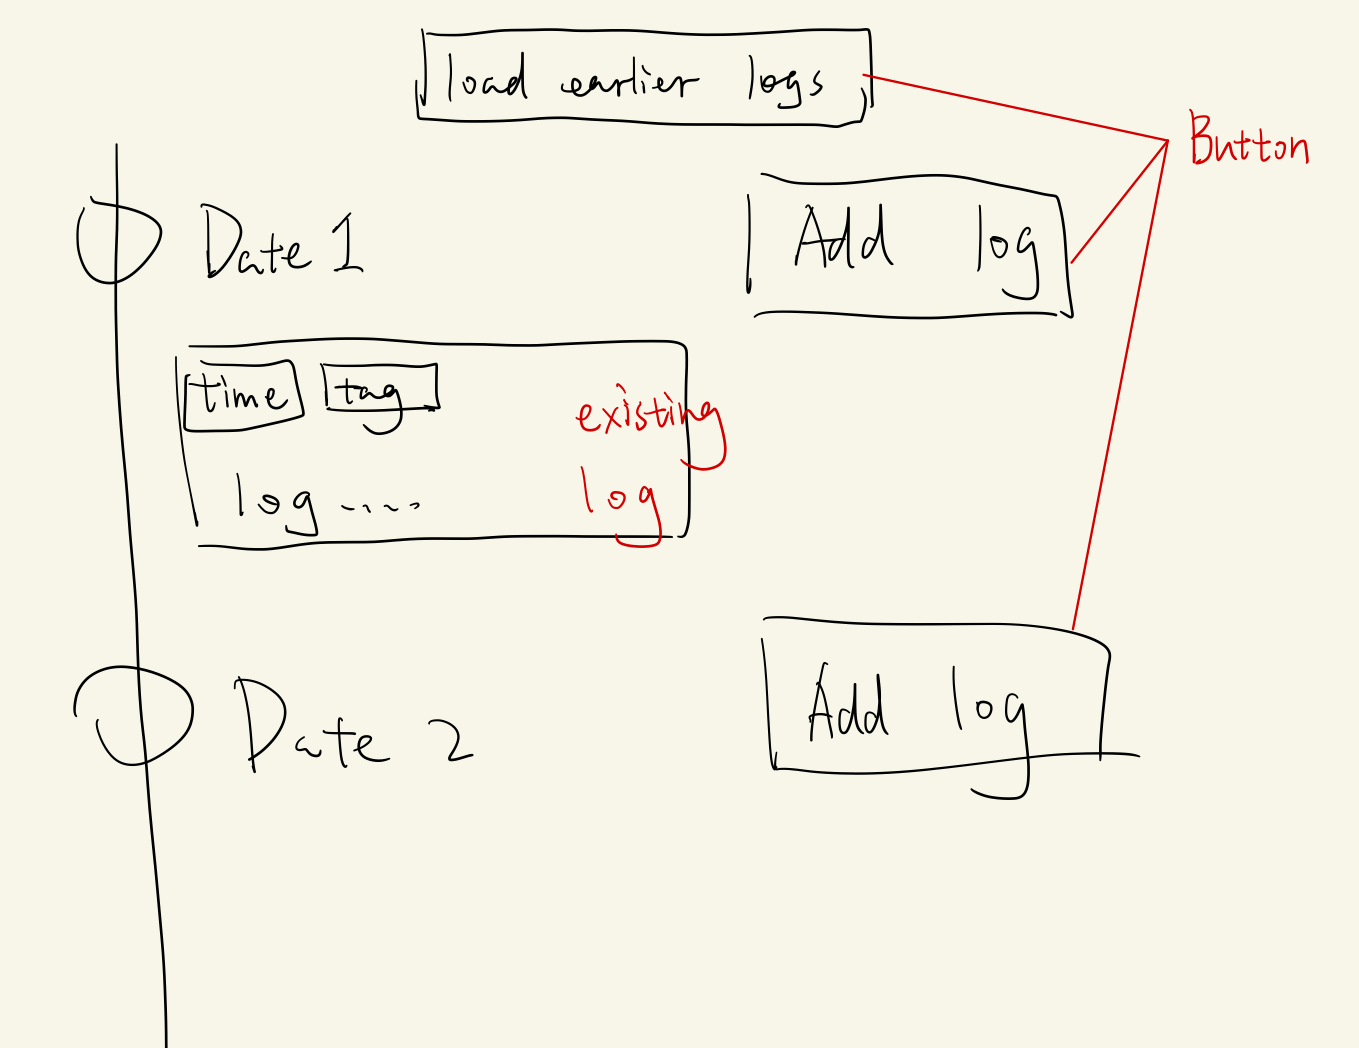 load earlier logs
Button
Date 1
Add log
time
tag
existing
log ....
log
Date 2
Add log